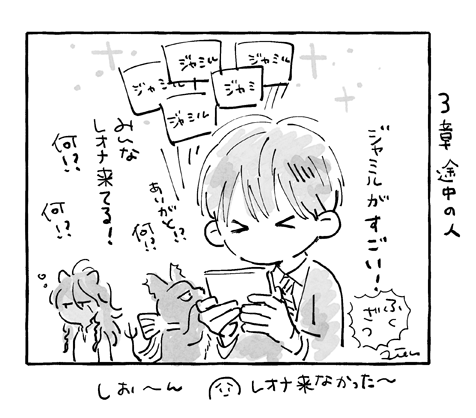 3章途中の人
ジャミル
ジャミル
ジャミル
ジャミ
ジャミル
ジャミルがすごい!
みんな
レオナ来てる!
ありがと!?
何!?
何!?
何!?
ふくざつ
しお〜ん
レオナ来なかった〜